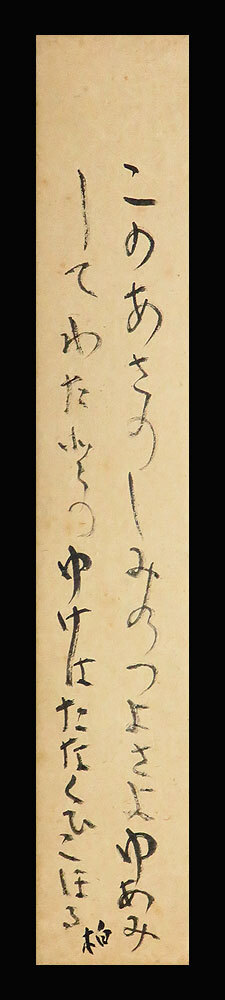 このあさのしみのつよさよゆあみ
してわたとのゆけはたなくひこほる
柏